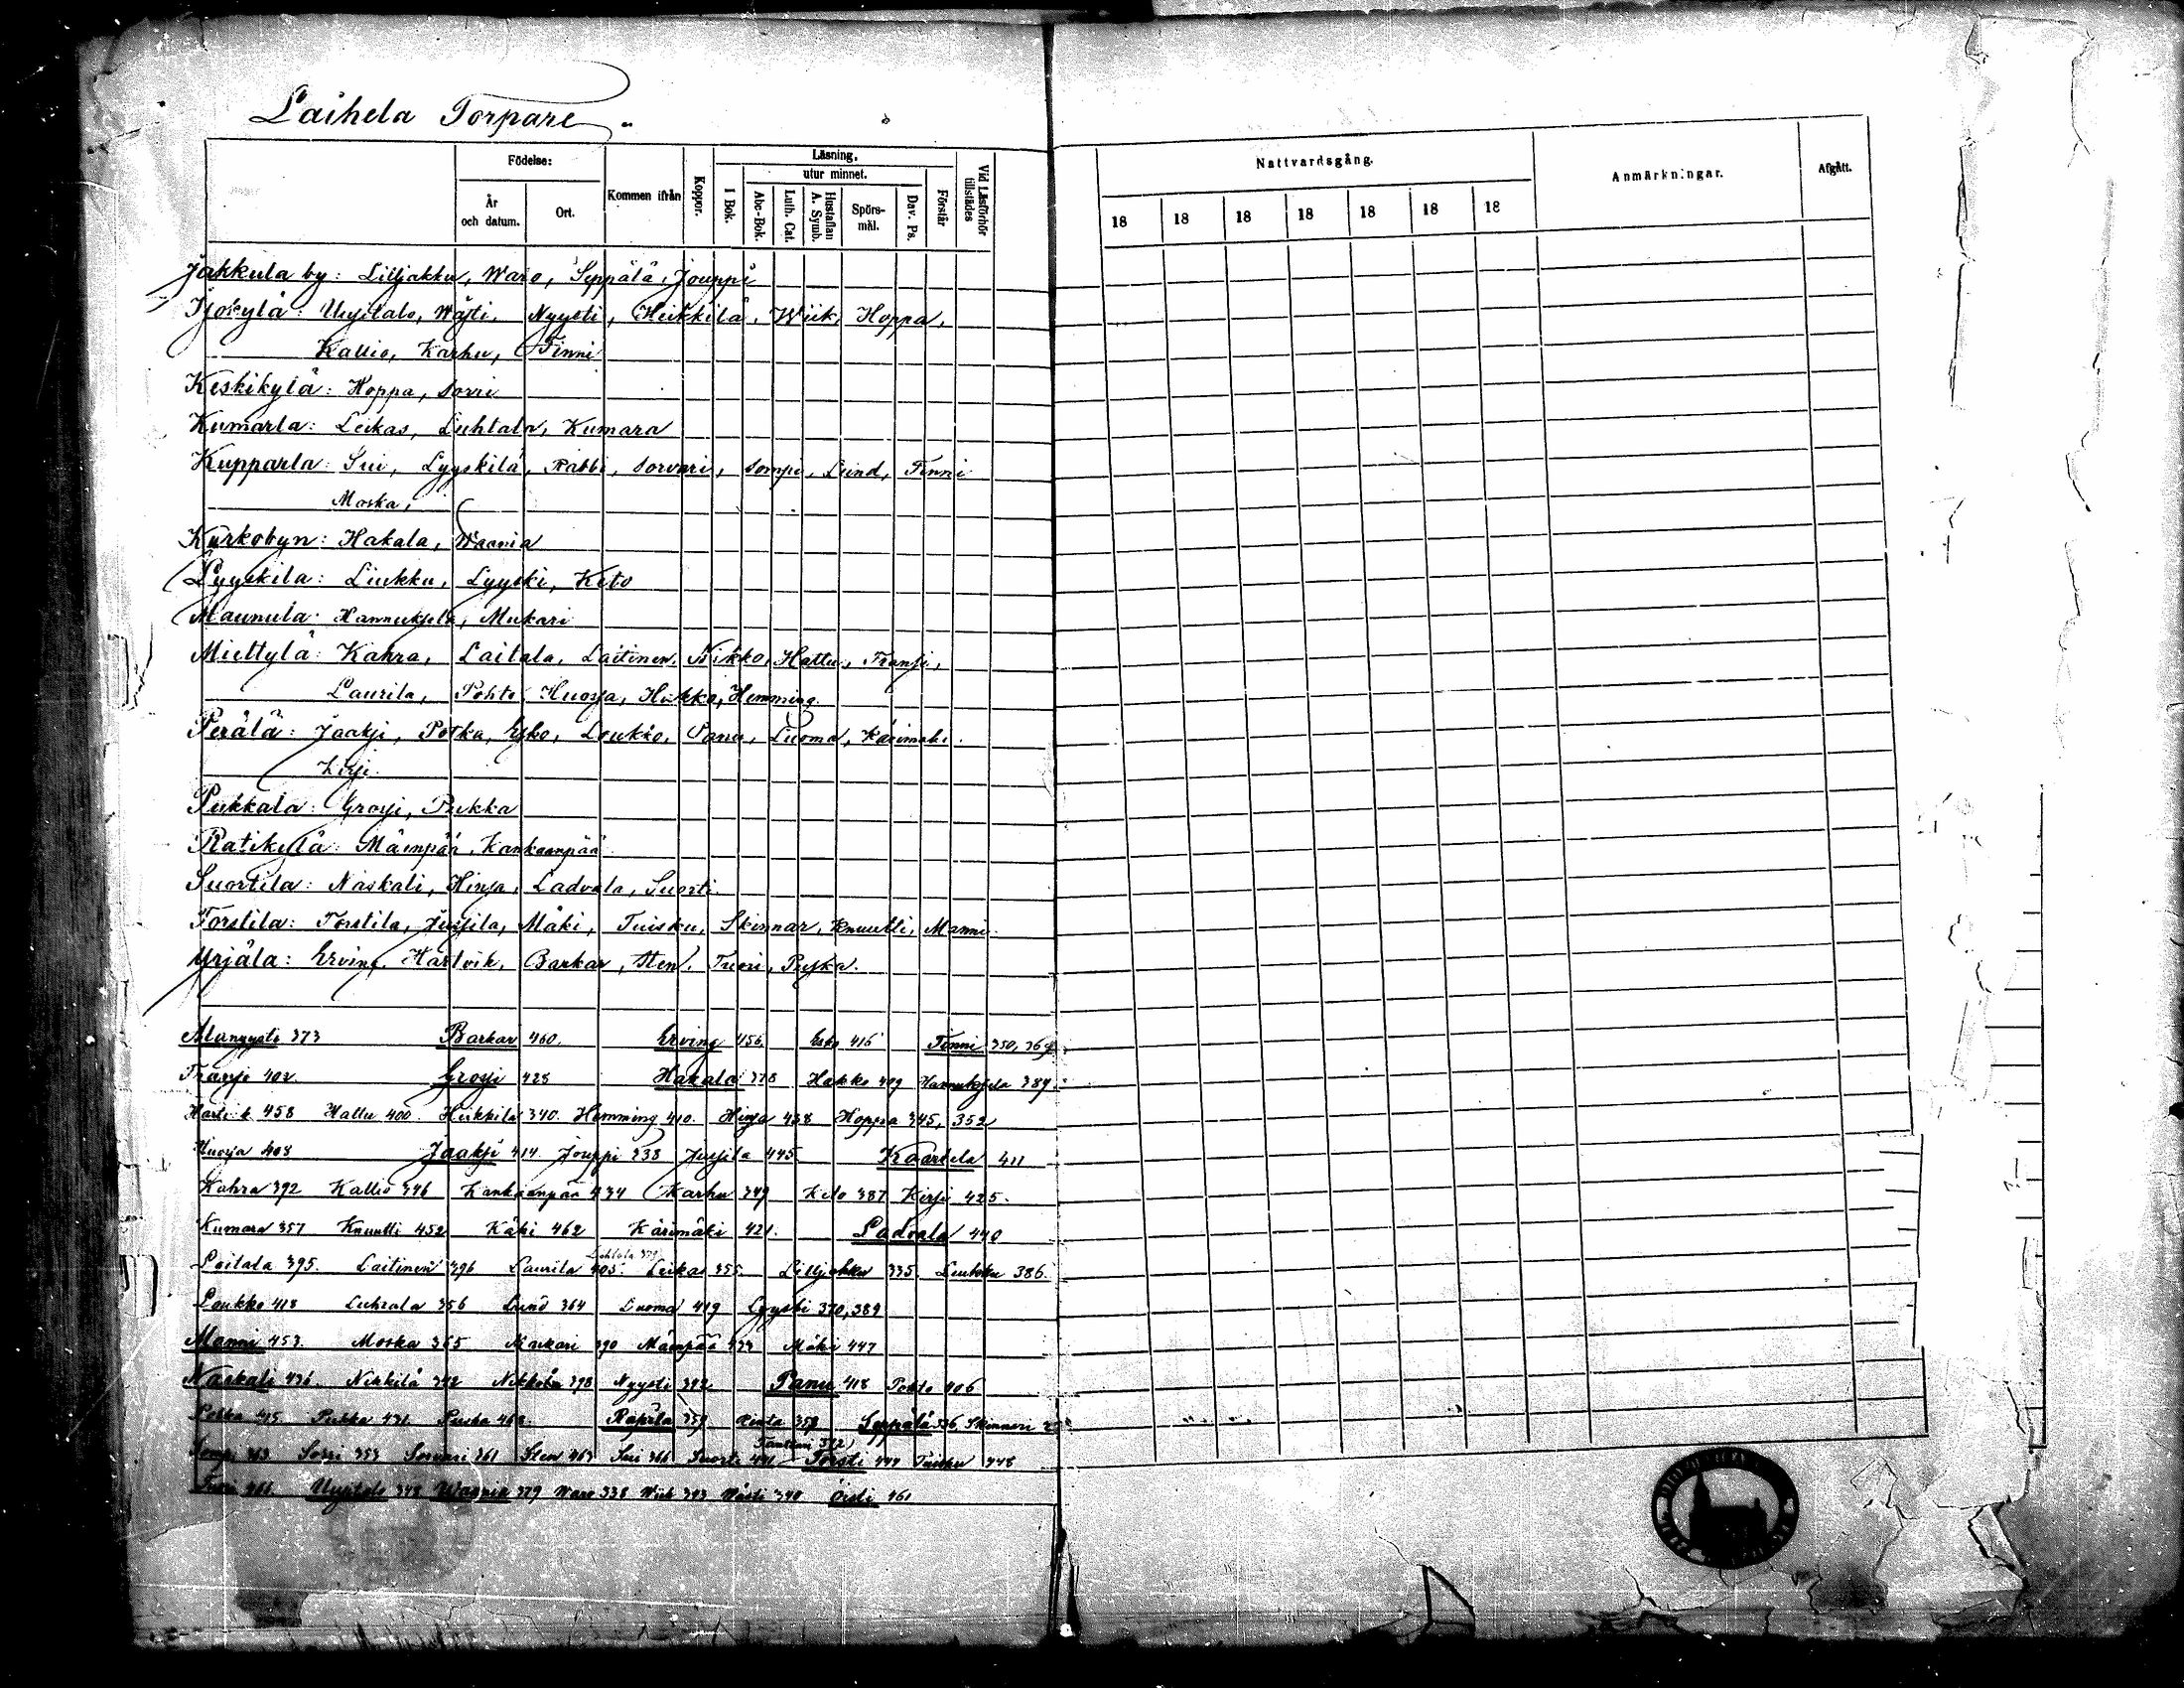 Laihela Torpare
Födelse:
Läsning.
utur minnet.
År och datum.
Ort.
Kommen ifrån
Koppor.
I Bok.
Abc-Bok.
Luth. Cat.
Hustaflan A. Symb.
Spörs-mål.
Dav. Ps.
Förstår
Vid Läsförhör tillstädes
Nattvardsgång.
Anmärkningar.
Afgått.
18 18 18 18 18 18 18
Jakkula by: Lilljakku, Waro, Seppälä, Jouppi
Isjokylä: Uusitalo, Wästi, Nyysti, Heikkilä, Wiik, Hoppa,
Kallio, Karhu, Finni
Keskikylä: Hoppa, Sorri
Kumarla: Leikas, Luhtala, Kumara
Kupparla: Sui, Lyyskilä, Rabbi, Sorvari, Sompi, Lund, Finni
Moska,
Kurkobyn: Hakala, Waania
Lyyskilä: Liukku, Lyyski, Keto
Maunula: Hannuksela, Mukari
Miettylä: Kahra, Laitala, Laitinen, Nikko, Hattu, Fransi,
Laurila, Pohto, Huosja, Hukko, Hemming.
Perälä: Jaaksi, Potka, Esko, Loukko, Panu, Luoma, Kärimäki.
Kirsi.
Pukkala: Grosi, Pukka
Ratikylä: Mäenpää, Kankaanpää
Suortila: Naskali, Hinsa, Ladvala, Suorti.
Torstila: Torstila, Jussila, Mäki, Tuisku, Skinnar, Knuutti, Manni.
Yrjälä: Erving, Hartvik, Barkar, Sten, Tuori, Puska.
Alanyysti 373 Barkar 460. Erving 456, Esko 416 Finni 350, 369
Fransi 402. Grosi 428 Hakala 378 Hukko 409 Hannuksela 389.
458 Hattu 400. Heikkilä 340. Hemming 410. Hinsa 438 Hoppa 345, 352
Huosja 408 Jaaksi 414 Jouppi 338 Jussila 445 Kaartela 411
Kahra 392 Kallio 346 Kankaanpää 434 Karhu 349 Keto 387 Kirsi 425.
Kumara 357 Knuutti 452 Käki 462 Kärimäki 421. Ladvala 440
Laitala 395. Laitinen 396 Laurila 405. Leikas 355. Lilljakku 335 386.
Loukko 418 Luhtala 356 Lund 364 Luoma 419 Lyyski 370, 389
Manni 453. Moska 365 Mukari 390 Mäenpää Mäki 447
Naskali 436. Nikkilä 342 398 Nyysti 342 Panu 418 Pohto 406
Potka 415. Pukka 431. Puska 468. Räpälä 359 358 Seppälä 336, Skinnari
Sompi 363. Sorri 353 Sorvari 361 Sten 463 Sui 366 Suorti 441 Torsti 444 Tuisku 448
Uusitalo 348 Waania 379 Waro 338 Wiik 343 Wästi 340 461